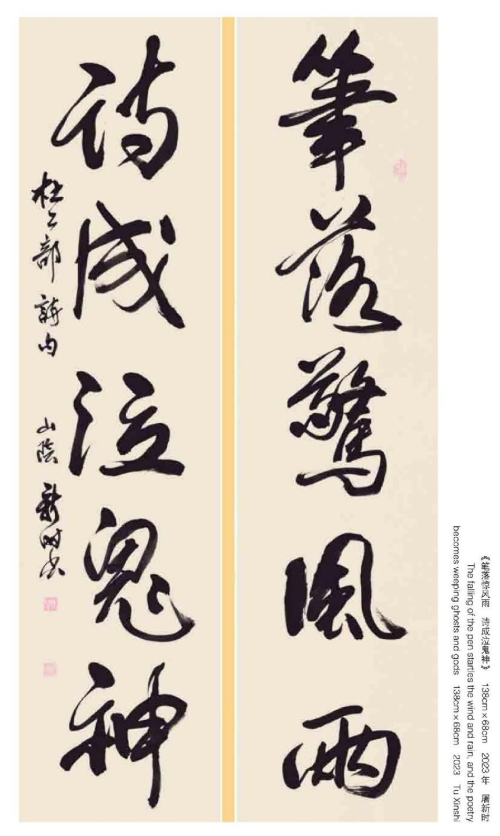 筆落驚風雨
詩成泣鬼神
杜工部詩句 山陰新時書
《笔落惊风雨 诗成泣鬼神》 138cm×68cm 2023年 屠新时
The falling of the pen startles the wind and rain, and the poetry
becomes weeping ghosts and gods 138cm×68cm 2023 Tu Xinshi